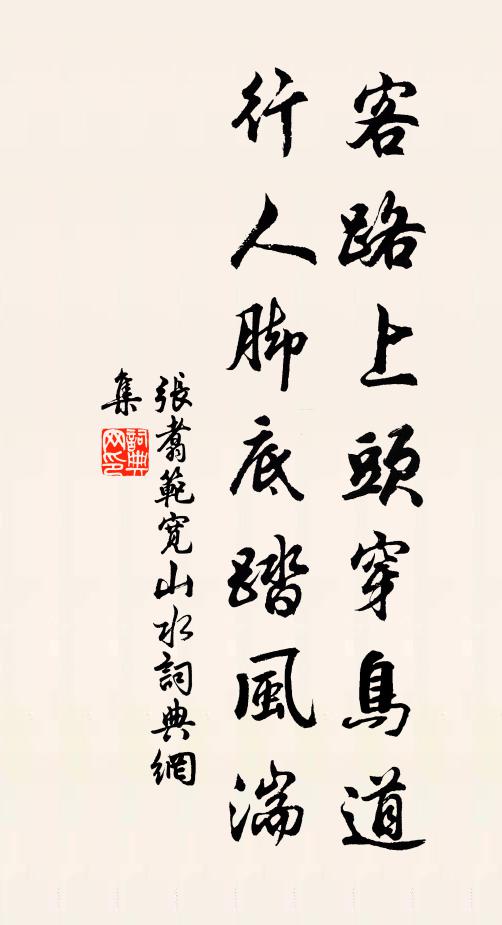 客路上頭穿鳥道
行人脚底踏風湍
張翥範寬山水詞典網
集
詞典
网印